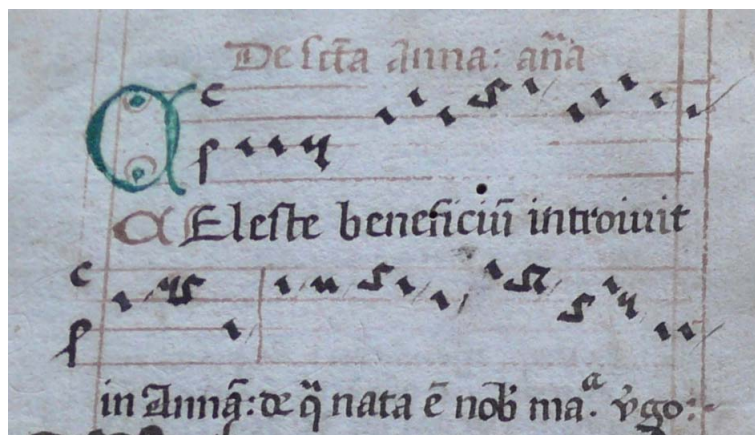 De sct̄a Anna: an̄a
CEleste beneficiū introiuit
in Annā: de q̄ nata ē nob̄ ma.ͣ v̓go: